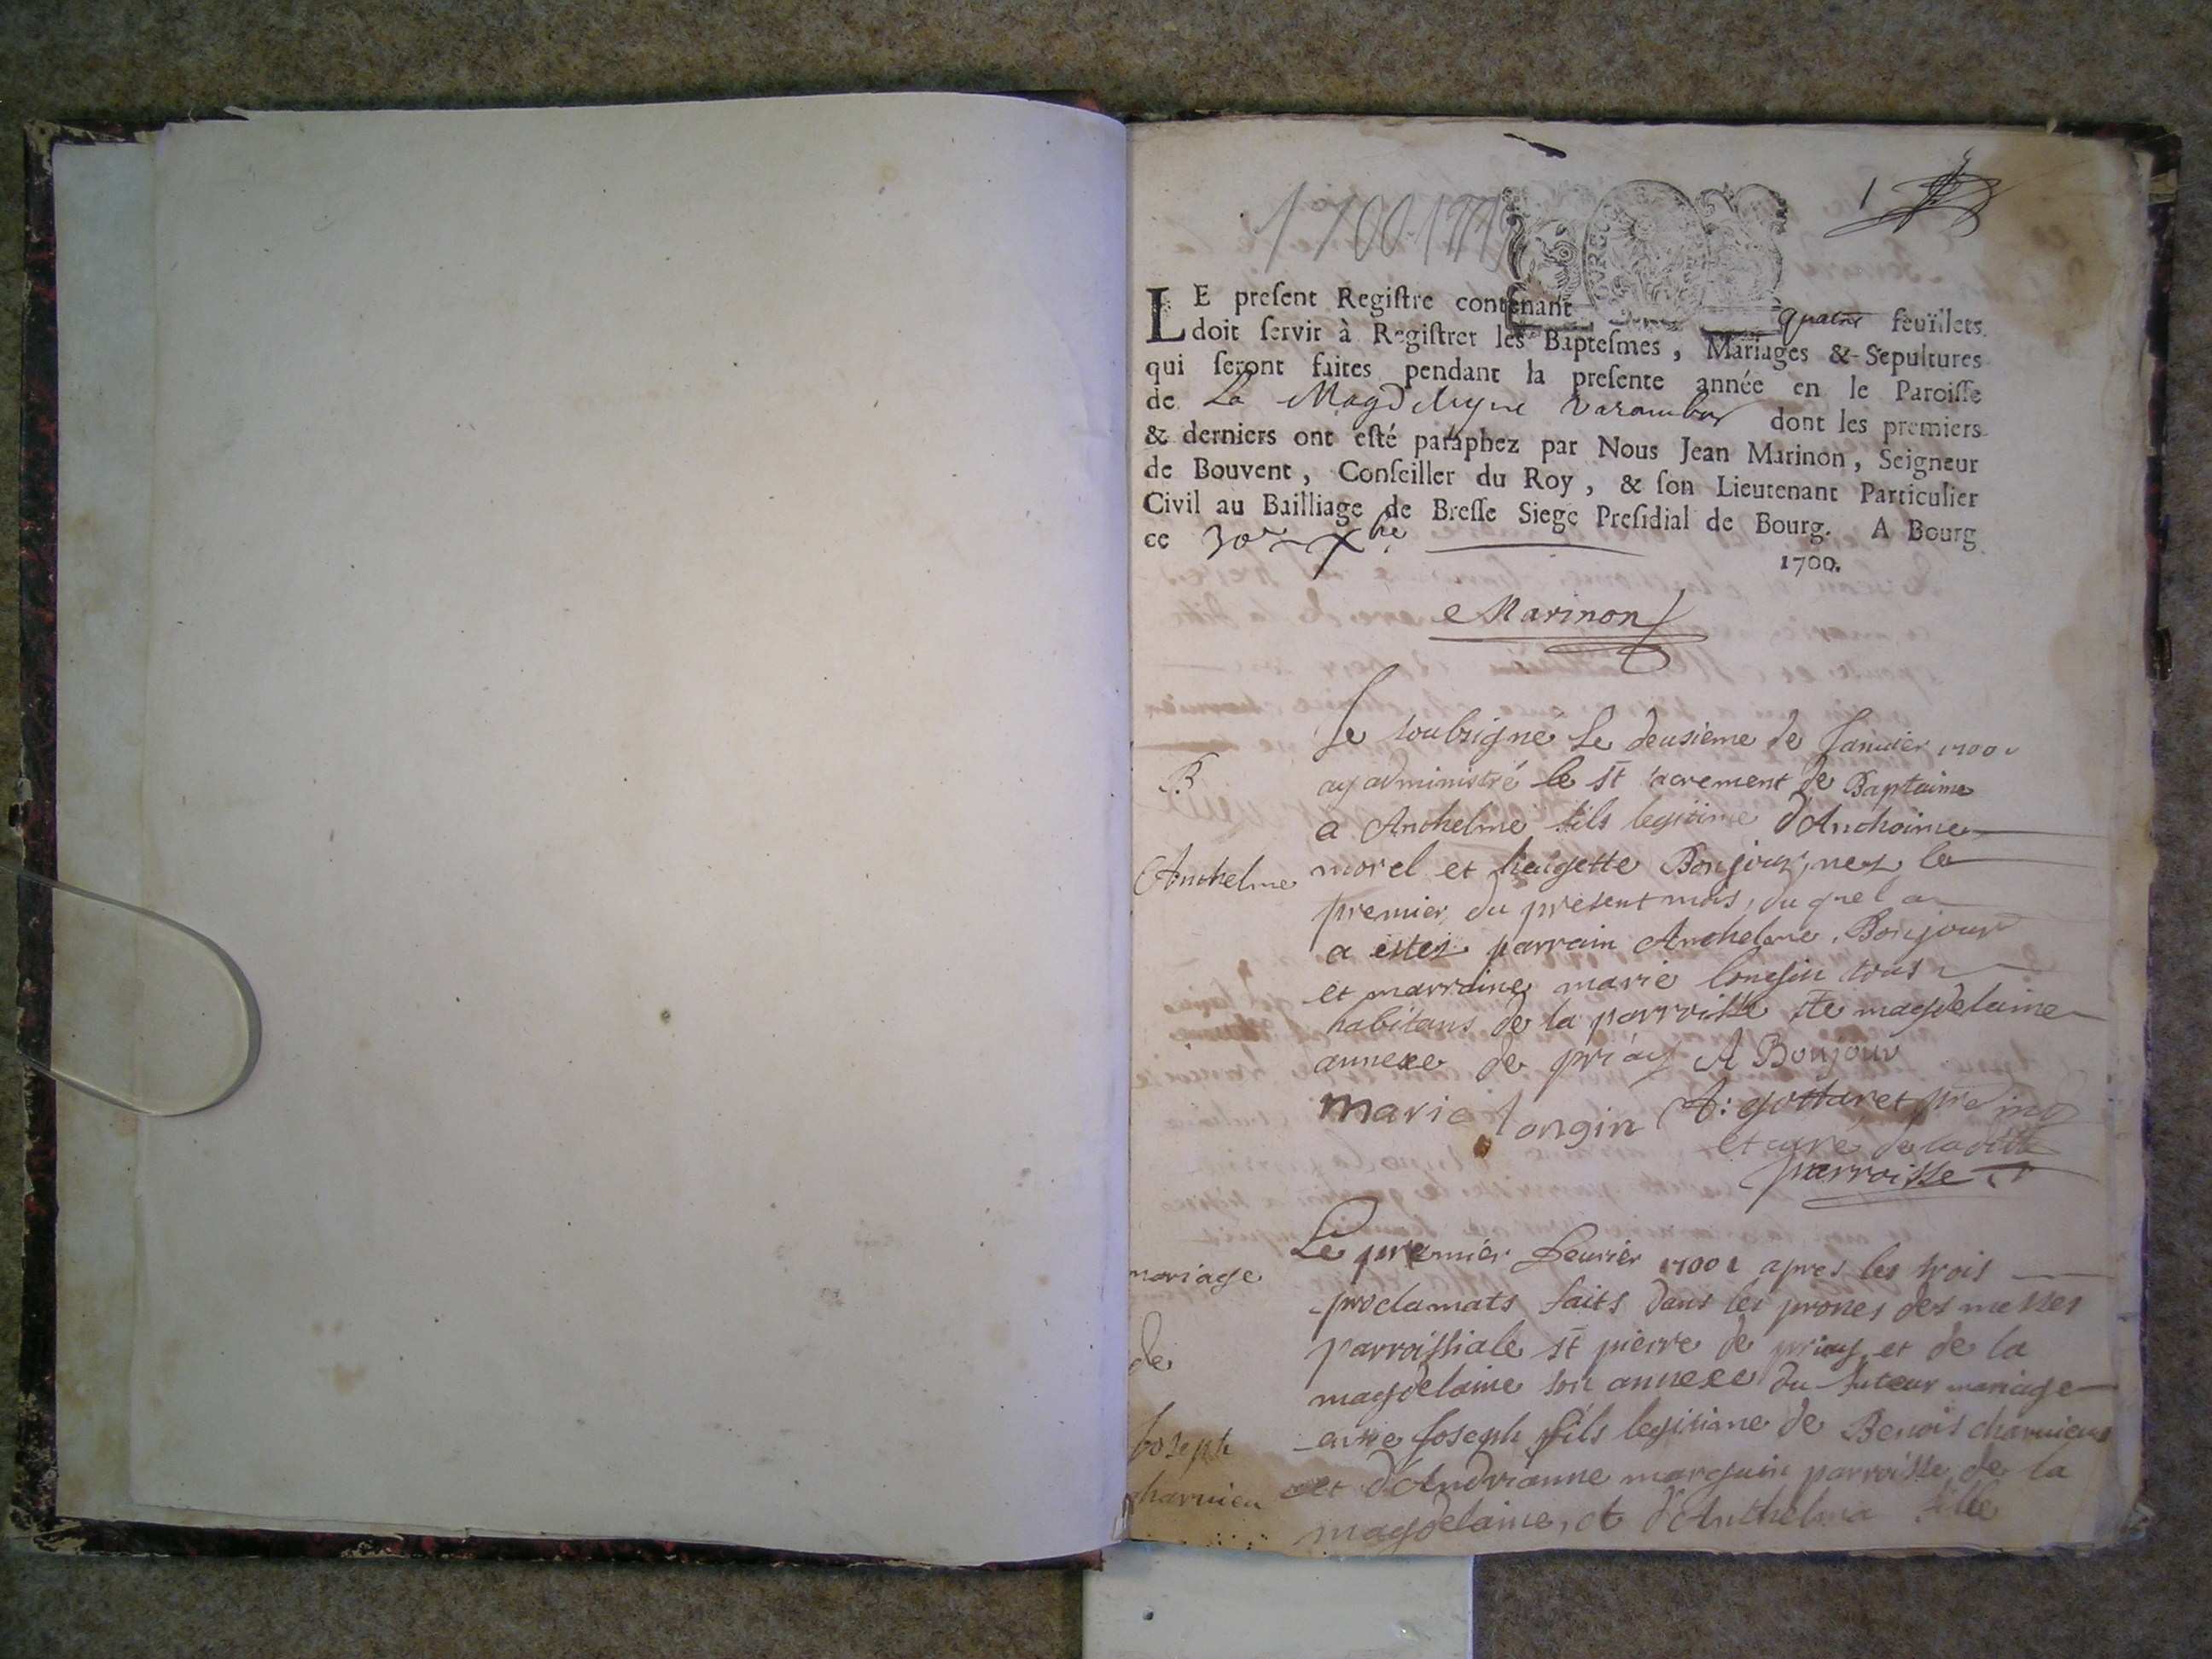 1
1700-1779
LE preſent Regiſtre contenant quatre feüillets
doit ſervir à Regiſtrer les Bapteſmes, Mariages & Sepultures
qui ſeront faites pendant la preſente année en le Paroiſſe
de La Magdeleyne Varambon dont les premiers
& derniers ont eſté paraphez par Nous Jean Marinon, Seigneur
de Bouvent, Conſeiller du Roy, & ſon Lieutenant Particulier
Civil au Bailliage de Breſſe Siege Preſidial de Bourg. A Bourg
ce 30e Xbre
1700.
Marinon
Je soubsigné Le deusieme de Januier 1700
B
ay administré le st sacrement de Baptaime
a Anthelme fils legitime d'Anthoime
Anthelme
morel et heugette Bonjour, nez le
premier du present mois, du quel a
a estez parrain Anthelme Bonjour
et marraine marie longin tous
habitans de la parroisse ste magdelaine
annexe de priay A Bonjour
marie longin A: gottaret ptre
et curé de la ditte
parroisse
mariage
Le premier feurier 1700 apres les trois
proclamats faits dans les prones des messes
de
parroissiale st pierre de priay et de la
magdelaine son annexe du futeur mariage
Joseph
entre Joseph fils legitime de Benois charuieu
charuieu
et d'Andrianne marguin parroisse de la
magdelaine, et d'Anthelma fille